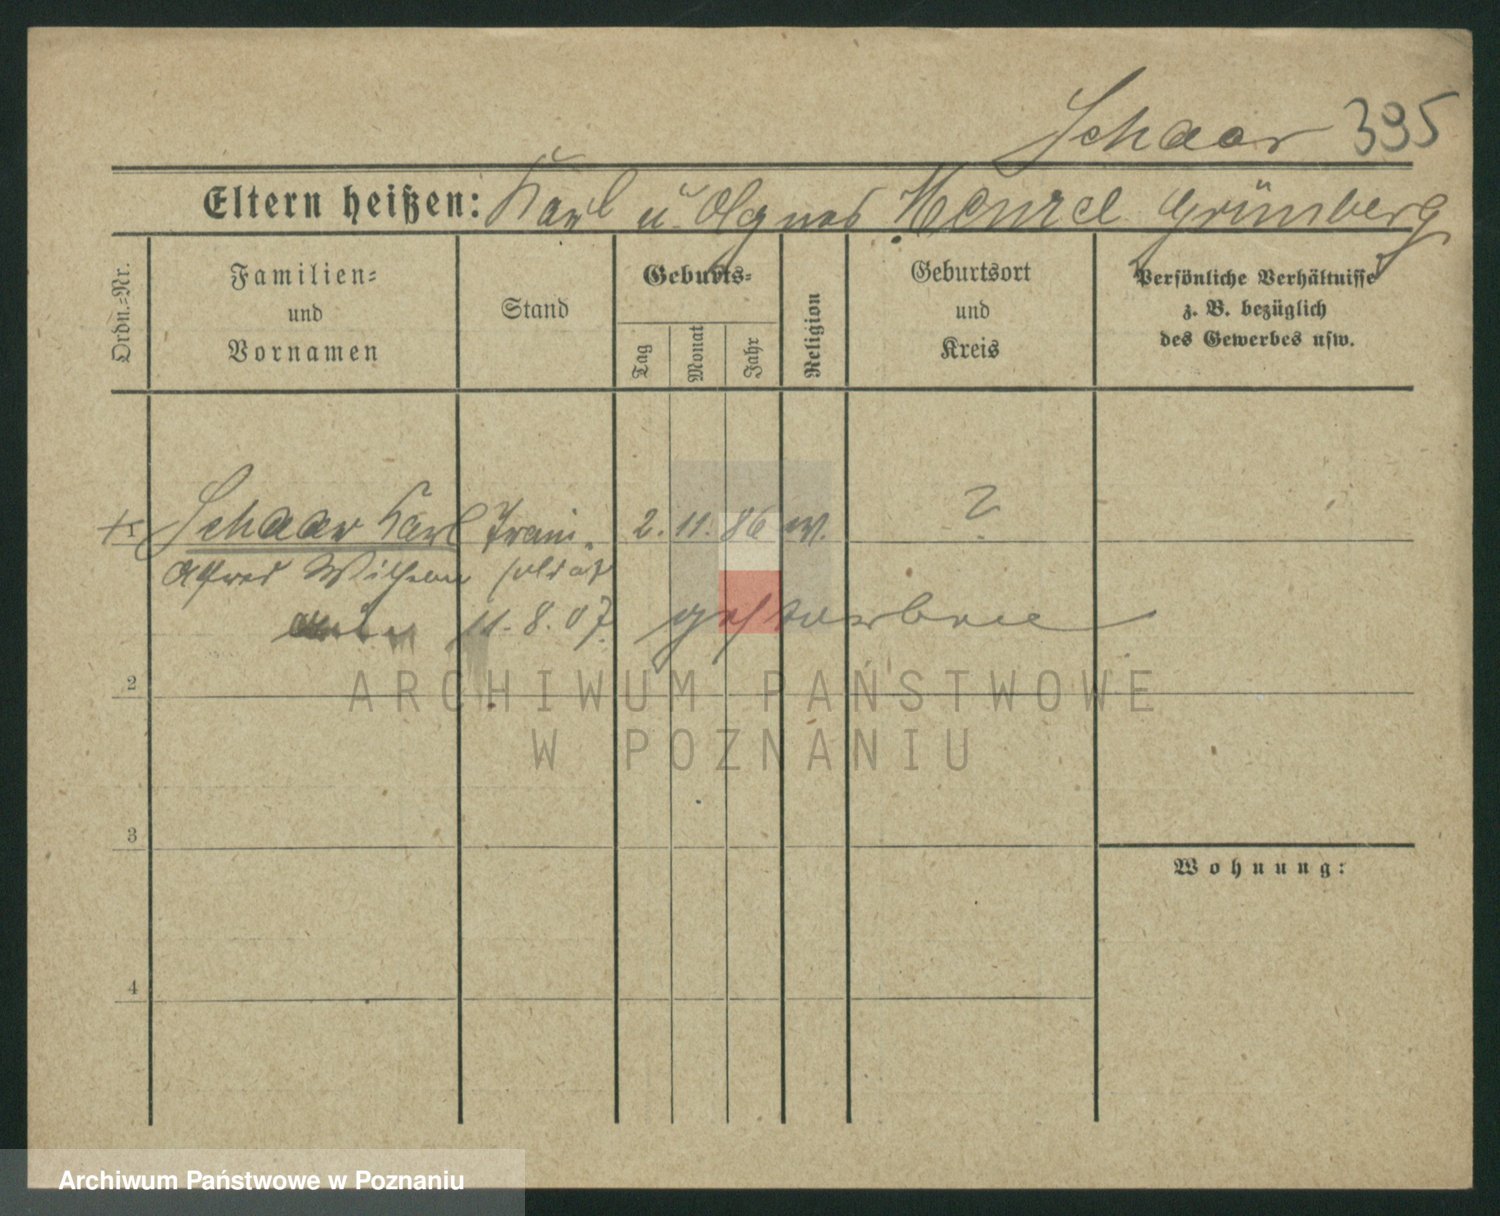 Schaar 395
Eltern heißen: Karl u. Agnes Menzel Grünberg
Ordn.=Nr.
Familien=
und
Vornamen
Stand
Geburts=
Tag
Monat
Jahr
Religion
Geburtsort
und
Kreis
Persönliche Verhältnisse
z. B. bezüglich
des Gewerbes usw.
Schaar Karl Train- 2. 11. 86 ev. ?
Alfred Wilhelm soldat
11. 8. 07. gestorben
2
3
4
Wohnung:
ARCHIWUM PAŃSTWOWE
W POZNANIU
Archiwum Państwowe w Poznaniu